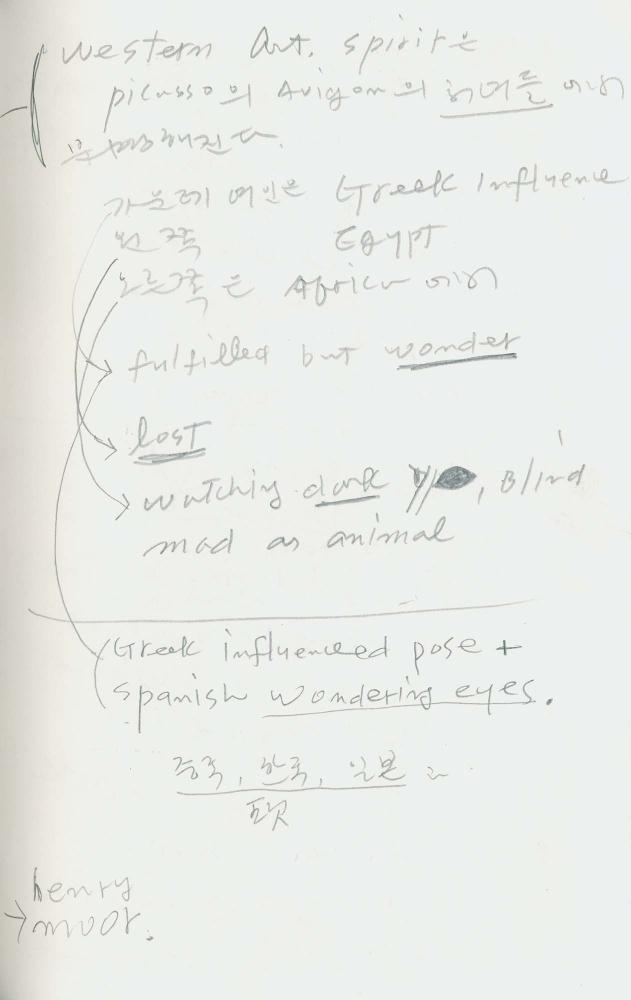 Western Art. spirit은
picasso의 Avigon의 처녀들 에서
가운데 여인은 Greek Influence
왼쪽 EGYPT
오른쪽은 Africa 에서
fulfilled but wonder
lost
watching dark, Blind
mad as animal
Greek influenced pose +
Spanish wondering eyes.
중국, 한국, 일본
henry
moor.